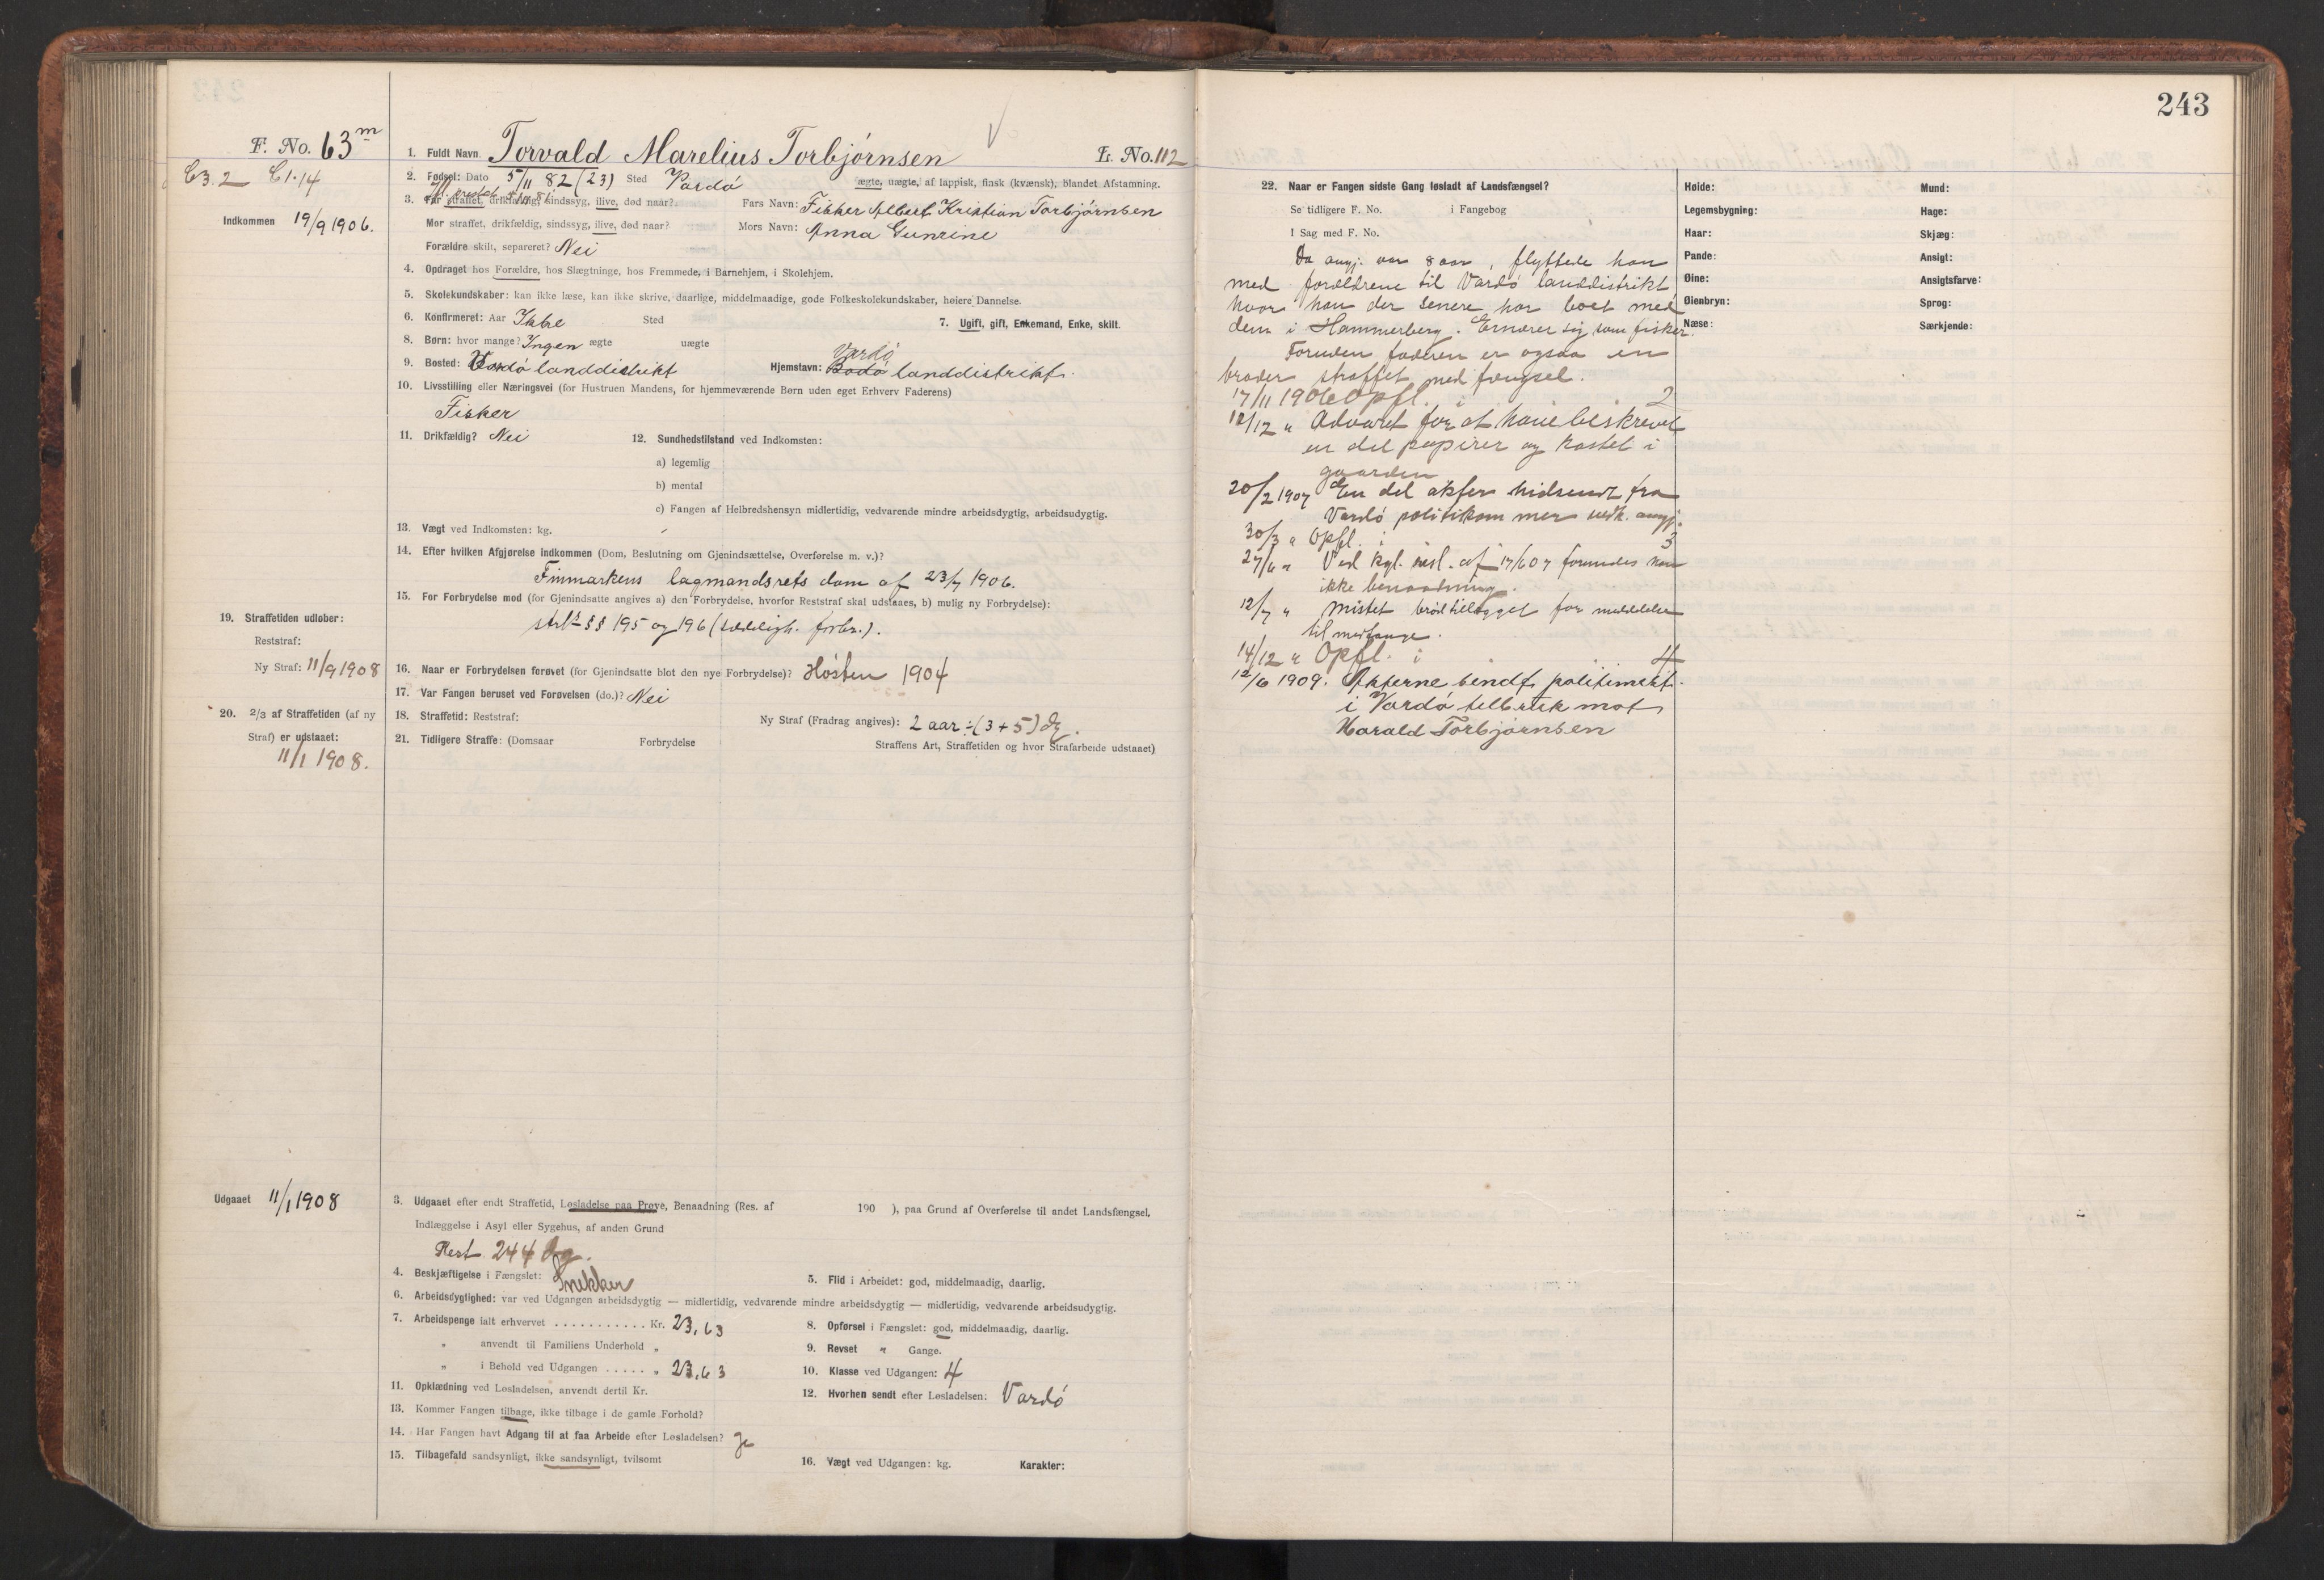 243
F. No. 63 m
1. Fuldt Navn Torvald Marelius Torbjørnsen L. No. 112
C3.2 C1.14
2. Fødsel: Dato 5/11 82 (23) Sted Vardø ægte, uægte, af lappisk, finsk (kvænsk), blandet Afstamning.
3. Far straffet, drikfældig, sindssyg, ilive, død naar? Fars Navn: Fisker Albert Kristian Torbjørnsen
Indkommen 19/9 1906.
Mor straffet, drikfældig, sindssyg, ilive, død naar? Mors Navn: Anna Gunrine
Forældre skilt, separeret? Nei
4. Opdraget hos Forældre, hos Slægtninge, hos Fremmede, i Barnehjem, i Skolehjem.
5. Skolekundskaber: kan ikke læse, kan ikke skrive, daarlige, middelmaadige, gode Folkeskolekundskaber, høiere Dannelse.
6. Konfirmeret: Aar Ikke Sted 7. Ugift, gift, Enkemand, Enke, skilt.
8. Børn: hvor mange? Ingen ægte uægte
Vardø
9. Bosted: Vardø landdistrikt Hjemstavn: Bodø landdistrikt.
10. Livsstilling eller Næringsvei (for Hustruen Mandens, for hjemmeværende Børn uden eget Erhverv Faderens)
Fisker
11. Drikfældig? Nei 12. Sundhedstilstand ved Indkomsten:
a) legemlig
b) mental
c) Fangen af Helbredshensyn midlertidig, vedvarende mindre arbeidsdygtig, arbeidsudygtig.
13. Vægt ved Indkomsten: kg.
14. Efter hvilken Afgjørelse indkommen (Dom, Beslutning om Gjenindsættelse, Overførelse m. v.)?
Finmarkens lagmandsrets dom af 23/7 1906.
15. For Forbrydelse mod (for Gjenindsatte angives a) den Forbrydelse, hvorfor Reststraf skal udstaaes, b) mulig ny Forbrydelse):
strl §§ 195 og 196 (sædeligh. forbr.).
19. Straffetiden udløber:
Reststraf:
Ny Straf: 11/9 1908
16. Naar er Forbrydelsen forøvet (for Gjenindsatte blot den nye Forbrydelse)? Høsten 1904
17. Var Fangen beruset ved Forøvelsen (do.)? Nei
20. 2/3 af Straffetiden (af ny
Straf) er udstaaet:
11/1 1908.
18. Straffetid: Reststraf: Ny Straf (Fradrag angives): 2 aar ÷ (3 + 5) dg.
21. Tidligere Straffe: (Domsaar Forbrydelse Straffens Art, Straffetiden og hvor Strafarbeide udstaaet)
Udgaaet 11/1 1908
3. Udgaaet efter endt Straffetid, Løsladelse paa Prøve, Benaadning (Res. af 190 ), paa Grund af Overførelse til andet Landsfængsel,
Indlæggelse i Asyl eller Sygehus, af anden Grund
Rest 244 dg.
4. Beskjæftigelse i Fængslet: Snekker 5. Flid i Arbeidet: god, middelmaadig, daarlig.
6. Arbeidsdygtighed: var ved Udgangen arbeidsdygtig — midlertidig, vedvarende mindre arbeidsdygtig — midlertidig, vedvarende arbeidsudygtig.
7. Arbeidspenge ialt erhvervet ........... Kr. 23,63 8. Opførsel i Fængslet: god, middelmaadig, daarlig.
„ anvendt til Familiens Underhold „ 9. Revset „ Gange.
„ i Behold ved Udgangen ..... „ 23,63 10. Klasse ved Udgangen: 4
11. Opklædning ved Løsladelsen, anvendt dertil Kr. 12. Hvorhen sendt efter Løsladelsen: Vardø
13. Kommer Fangen tilbage, ikke tilbage i de gamle Forhold?
14. Har Fangen havt Adgang til at faa Arbeide efter Løsladelsen? Ja
15. Tilbagefald sandsynligt, ikke sandsynligt, tvilsomt 16. Vægt ved Udgangen: kg. Karakter:
22. Naar er Fangen sidste Gang løsladt af Landsfængsel?
Se tidligere F. No. i Fangebog
I Sag med F. No.
Da angj. var 8 aar, flyttede han
med forældrene til Vardø landdistrikt
hvor han der senere har boet med
dem i Hammerberg. Ernærer sig som fisker.
Foruden faderen er ogsaa en
broder straffet med fængsel.
17/11 1906 Opfl. i 2
12/12 „ Advaret for at have beskrevet
en del papirer og kastet i
gaarden
20/2 1907 En del akter hidsendt fra
Vardø politikammer vedk. angj.
30/3 „ Opfl. i 3
27/6 „ Ved kgl. resl. af 17/6 07 formendes han
ikke benaadning.
12/7 „ Mistet brødtillægget for meddelelse
til medfange.
14/12 „ Opfl. i 4
12/6 1909. Akterne sendt politimekt.
i Vardø til bruk mot
Harald Torbjørnsen
Høide:
Legemsbygning:
Haar:
Pande:
Øine:
Øienbryn:
Næse:
Mund:
Hage:
Skjæg:
Ansigt:
Ansigtsfarve:
Sprog:
Særkjende: